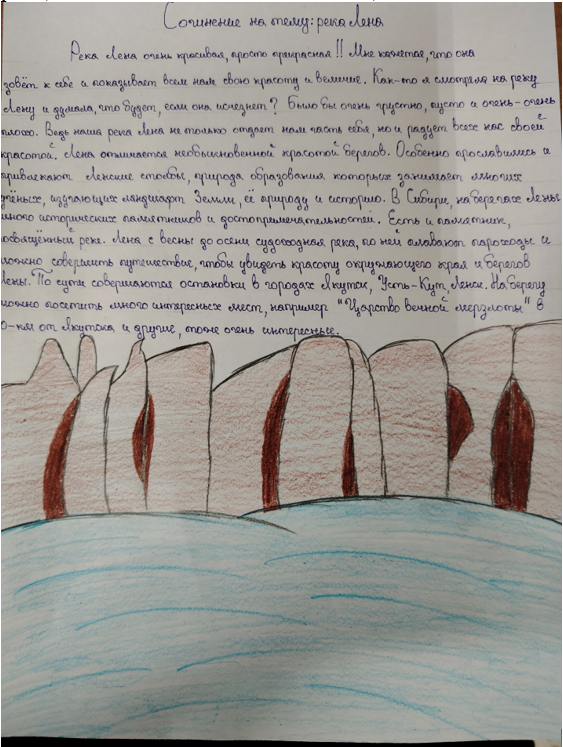 Сочинение на тему: река Лена
Река Лена очень красивая, просто прекрасная!! Мне кажется, что она
зовёт к себе и показывает всем нам свою красоту и величие. Как-то я смотрела на реку
Лену и думала, что будет, если она исчезнет? Было бы очень грустно, пусто и очень-очень
плохо. Ведь наша река Лена не только отдает нам часть себя, но и радует всех нас своей
красотой. Лена отличается необыкновенной красотой берегов. Особенно прославились и
привлекают Ленские столбы, природа образования которых занимает многих
учёных, изучающих ландшафт Земли, её природу и историю. В Сибири, на берегах Лены
много исторических памятников и достопримечательностей. Есть и памятник,
посвящённый реке. Лена с весны до осени судоходная река, по ней плавают пароходы и
можно совершить путешествие, чтобы увидеть красоту окружающего края и берегов
Лены. По пути совершаются остановки в городах Якутск, Усть-Кут, Ленск. На берегу
можно посетить много интересных мест, например "Царство вечной мерзлоты" в
0-км от Якутска и другие, тоже очень интересные.